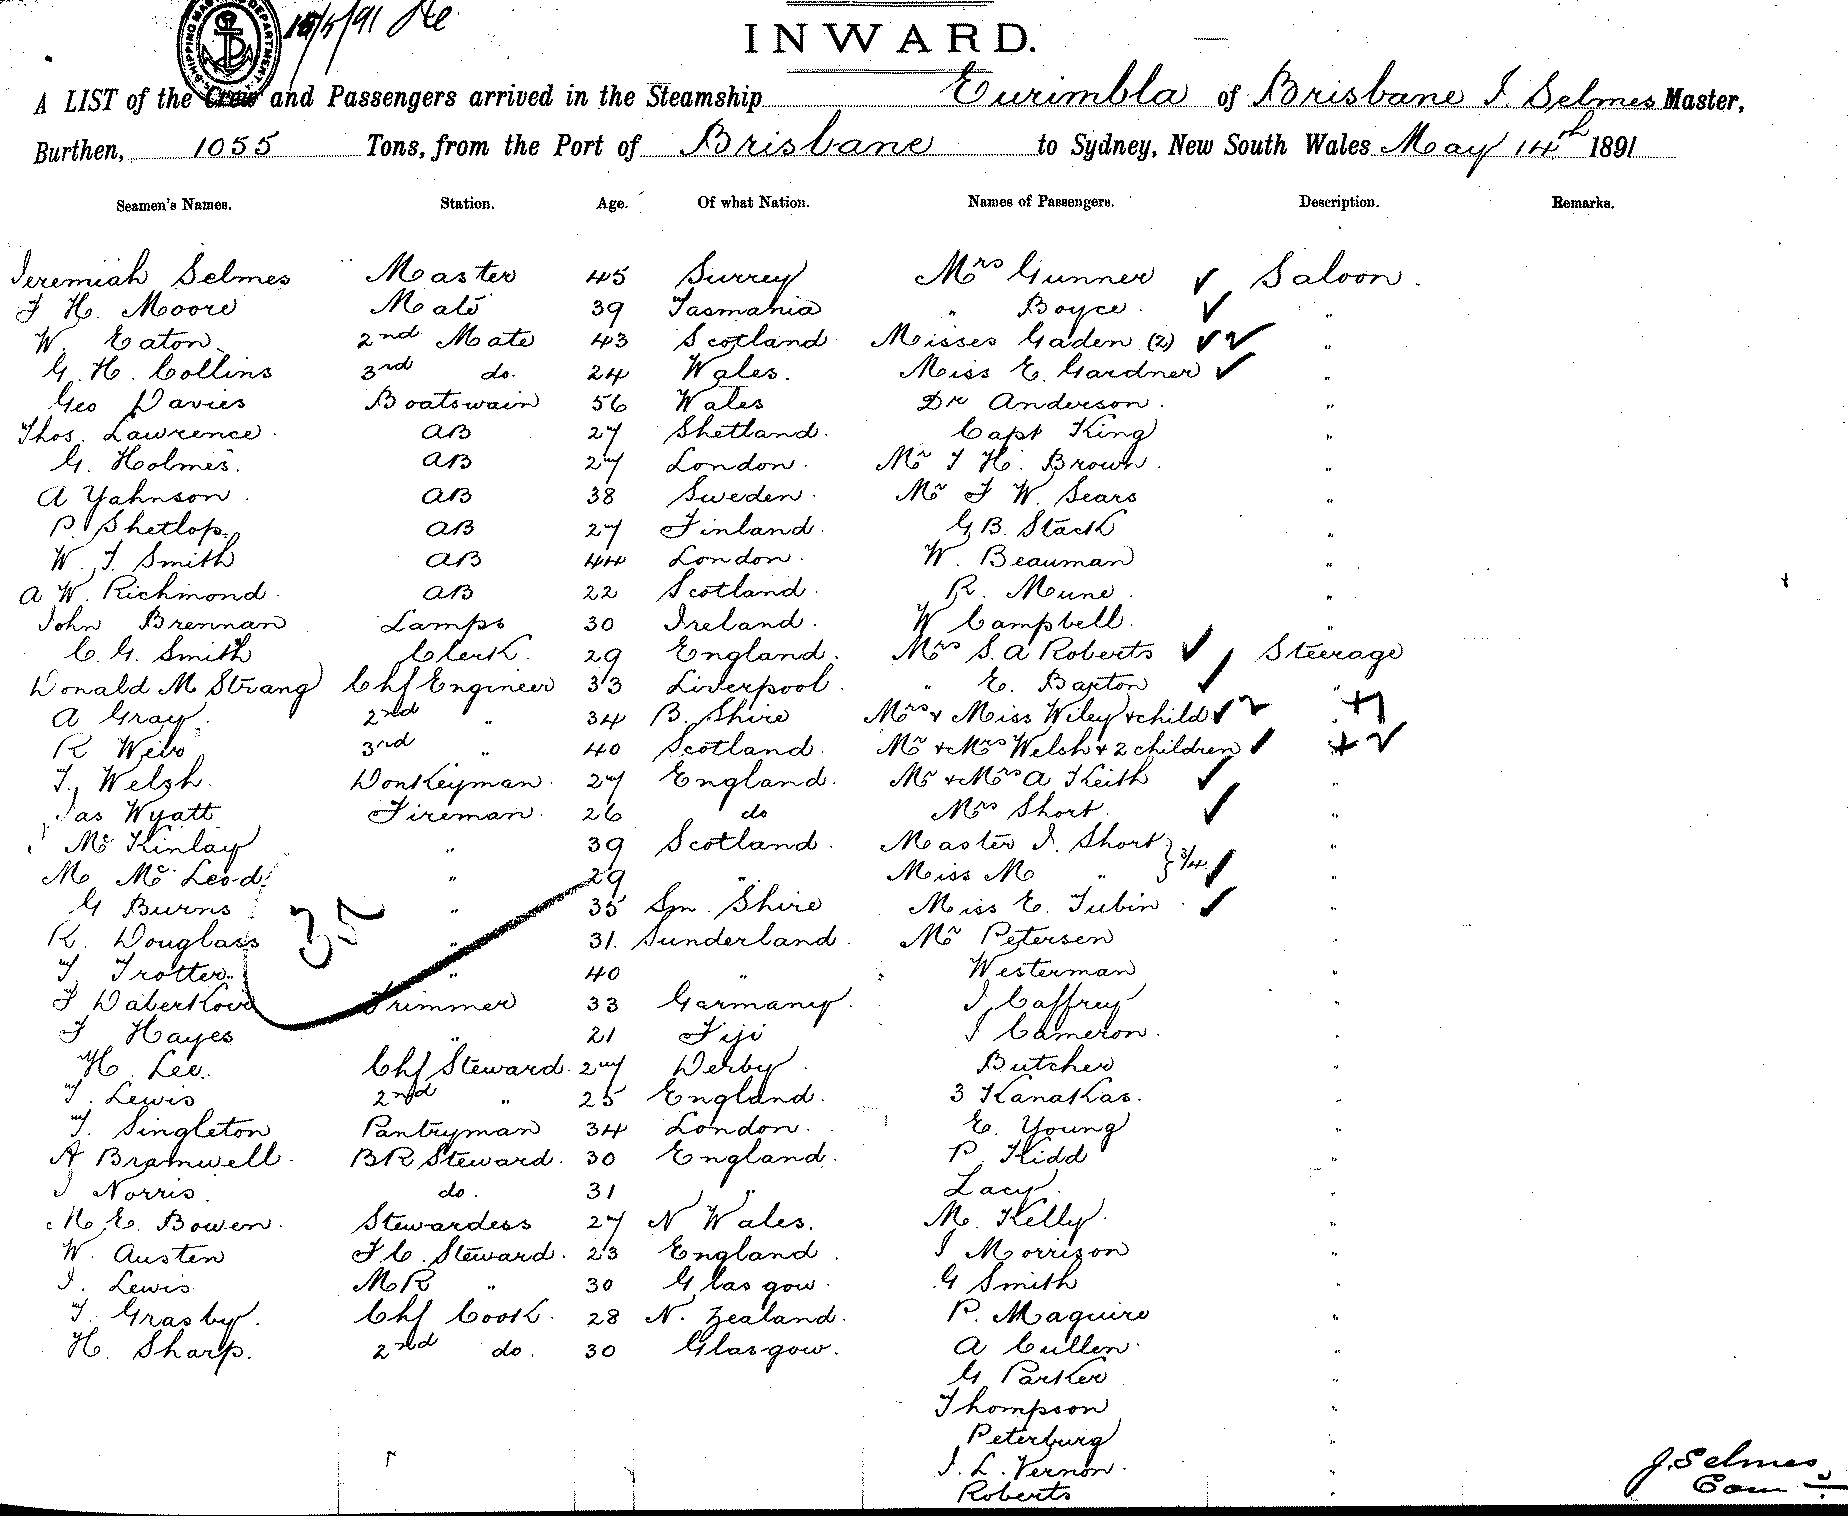 15/5/91
INWARD.
A LIST of the Crew and Passengers arrived in the Steamship Eurimbla of Brisbane J. Selmes Master,
Burthen, 1055 Tons, from the Port of Brisbane to Sydney, New South Wales May 14th 1891
Seamen's Names. Station. Age. Of what Nation. Names of Passengers. Description. Remarks.
Jeremiah Selmes Master 45 Surrey Mrs Gunner ✓ Saloon.
F H. Moore Mate 39 Tasmania " Boyce. ✓ "
W. Eaton. 2nd Mate 43 Scotland Misses Gaden (2) ✓✓ "
G. H. Collins 3rd do. 24 Wales. Miss E. Gardner ✓ "
Geo Davies Boatswain 56 Wales Dr Anderson. "
Thos. Lawrence. AB 27 Shetland. Capt King "
G. Holmes. AB 27 London. Mr T H. Brown. "
A Yahnson. AB 38 Sweden. Mr F W. Sears "
P. Shetlop. AB 27 Finland. G. B. Stack "
W. T. Smith AB 44 London. W. Beauman "
A W. Richmond. AB 22 Scotland. R. Mune. "
John Brennan Lamps 30 Ireland. W Campbell. "
C. G. Smith Clerk. 29 England. Mrs S. A Roberts ✓ Steerage
Donald M Strang Chf Engineer 33 Liverpool. " E. Barton ✓ "
A Gray. 2nd " 34 B. Shire Mrs & Miss Wiley & child ✓ 2 +1
R Weir 3rd " 40 Scotland. Mr & Mrs Welsh & 2 children ✓ +2
T. Welsh. Donkeyman. 27 England. Mr & Mrs A Keith ✓ "
Jas Wyatt Fireman. 26 do Mrs Short. ✓ "
Mc Kinlay " 39 Scotland. Master J. Short "
M Mc Leod " 29 " Miss M " } 3/4 ✓ "
G Burns " 35 Sm. Shire Miss E. Tubin. ✓ "
R. Douglass " 31. Sunderland. Mr Petersen "
T Trotter. " 40 " Westerman "
F Daberkow Trimmer 33 Garmany. J Caffrey "
F Hayes " 21 Fiji J Cameron. "
H. Lee. Chf Steward. 27 Derby. Butcher "
T. Lewis 2nd " 25 England. 3 Kanakas. "
T. Singleton Pantryman 34 London. E. Young "
A Bramwell. BR Steward. 30 England. P. Kidd "
J Norris. do. 31 " Lacy. "
M. E. Bowen. Stewardess 27 N Wales. M. Kelly. "
W. Austen F C. Steward. 23 England. J Morrison "
J. Lewis MR " 30 Glasgow. G Smith "
T. Grasby. Chf Cook. 28 N. Zealand. P. Maguire "
H. Sharp. 2nd do. 30 Glasgow. A Cullen. "
G Parker "
Thompson "
Peterburg "
J. L. Vernon. "
Roberts "
J. Selmes
Com